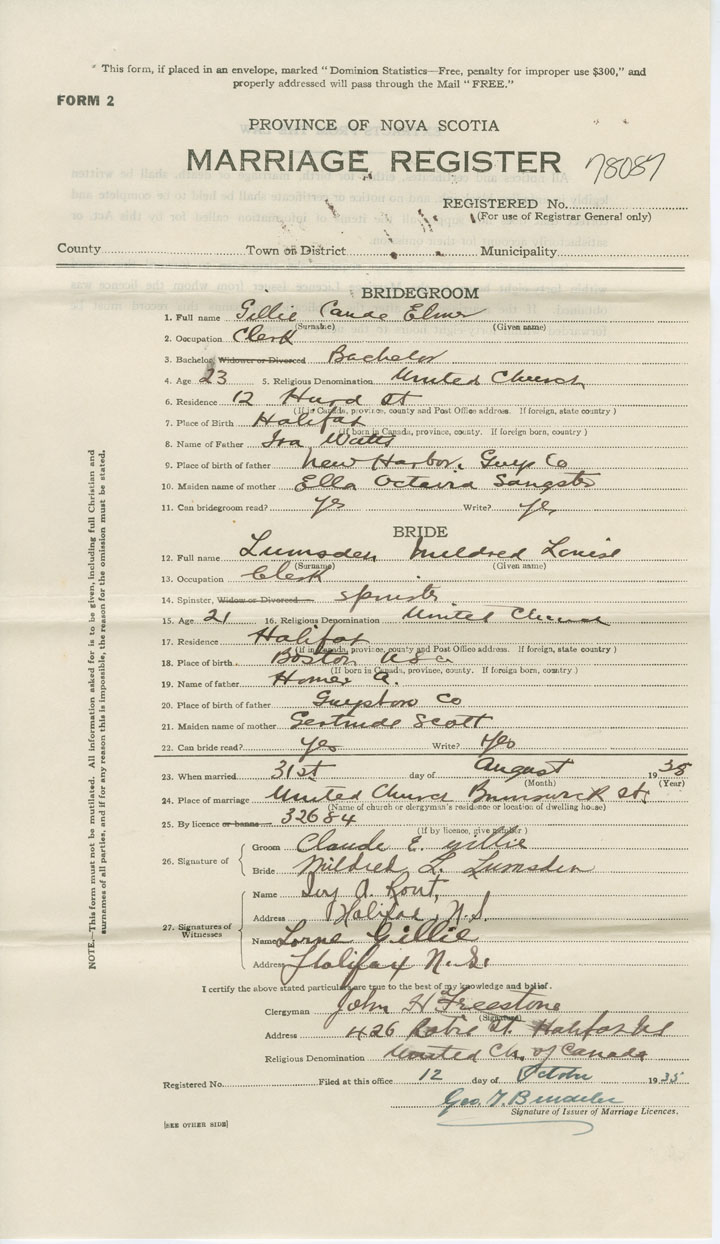 * This form, if placed in an envelope, marked "Dominion Statistics—Free, penalty for improper use $300," and
properly addressed will pass through the Mail "FREE."
FORM 2
PROVINCE OF NOVA SCOTIA
MARRIAGE REGISTER 78087
REGISTERED No.
(For use of Registrar General only)
County Town or District Municipality
BRIDEGROOM
1. Full name Gillie Caude Elmer
(Surname) (Given name)
2. Occupation Clerk
3. Bachelor, Widower or Divorced Bachelor
4. Age 23 5. Religious Denomination United Church
6. Residence 12 Hurd St
(If in Canada, province, county and Post Office address. If foreign, state country)
7. Place of Birth Halifax
(If born in Canada, province, county. If foreign born, country)
8. Name of Father Ira Watts
9. Place of birth of father New Harbor, Guys Co
10. Maiden name of mother Ella Octavia Sangster
11. Can bridegroom read? yes Write? yes
BRIDE
12. Full name Lumsden Mildred Louise
(Surname) (Given name)
13. Occupation Clerk
14. Spinster, Widow or Divorced Spinster
15. Age 21 16. Religious Denomination United Church
17. Residence Halifax
(If in Canada, province, county and Post Office address. If foreign, state country)
18. Place of birth Boston USa
(If born in Canada, province, county. If foreign born, country)
19. Name of father Homer A.
20. Place of birth of father Guysboro Co
21. Maiden name of mother Gertrude Scott
22. Can bride read? yes Write? Yes
23. When married 31st day of August 1935
(Month) (Year)
24. Place of marriage United Church Brunswick St.
(Name of church or clergyman's residence or location of dwelling house)
25. By licence or banns 32684
(If by licence, give number)
26. Signature of
Groom Claude E. Gillie
Bride Mildred L. Lumsden
27. Signatures of Witnesses
Name Ivy A. Rout,
Address Halifax, N.S.
Name Lorne Gillie
Address Halifax N.S.
I certify the above stated particulars are true to the best of my knowledge and belief.
Clergyman John H Freestone
(Signature)
Address 426 Robie St. Halifax NS
Religious Denomination United Ch. of Canada
Registered No. Filed at this office 12 day of October 1935
Geo. T.
Signature of Issuer of Marriage Licences.
[SEE OTHER SIDE]
NOTE.—This form must not be mutilated. All information asked for is to be given, including full Christian and
surnames of all parties, and if for any reason this is impossible, the reason for the omission must be stated.